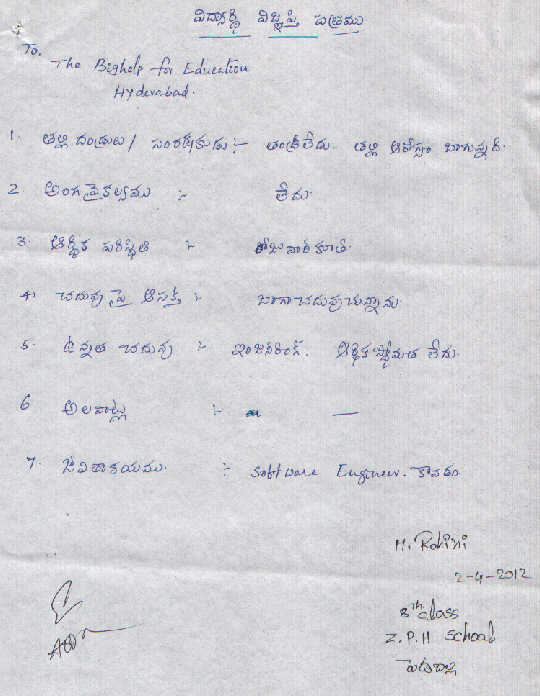 విద్యార్థి విజ్ఞప్తి పత్రము
To,
The Bighelp for Education
Hyderabad.
1. తల్లి దండ్రులు / సంరక్షకుడు :- తండ్రిలేడు. తల్లి ఆరోగ్యం బాగున్నది.
2 అంగవైకల్యము :- లేదు.
3. ఆర్థిక పరిస్థితి :- రోజువారికూలి.
4) చదువు పై ఆసక్తి :- బాగా చదువుచున్నాను.
5. ఉన్నత చదువు :- ఇంజనీరింగ్. ఆర్థిక స్తోమత లేదు.
6 అలవాట్లు :- —
7. జీవితాశయము. :- Software Engineer. కావడం
M. Rohini
2-4-2012
8th class
Z.P.H School